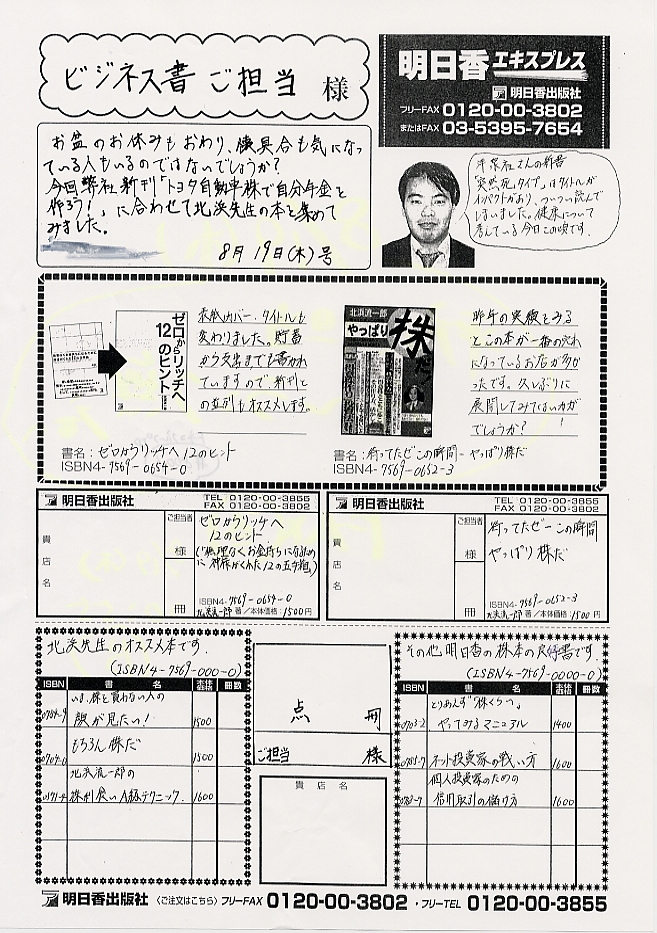 ビジネス書 ご担当 様
明日香エキスプレス
明日香出版社
フリーFAX 0120-00-3802
またはFAX 03-5395-7654
お盆のお休みもおわり、
も気になっ
ている人もいるのではないでしょうか?
今回弊社新刊「トヨタ自動車株で自分年金を
作ろう!」に合わせて北浜先生の本を集めて
みました。
8月19日(木)号
さんの新書
「突然死タイプ」はタイトルが
インパクトがあり、ついつい読んで
しまいました。健康について
考えている今日この頃です。
表紙カバー・タイトルも
変わりました。貯蓄
から支出までも書かれ
ていますので、新刊と
の並列もオススメします。
ゼロからリッチへ
12のヒント
書名:ゼロからリッチへ 12のヒント
ISBN4-7569-0654-0
北浜流一郎
やっぱり株だ
昨年の実績をみる
とこの本が一番の売れ
になっているお店が多か
ったです。久しぶりに
展開してみてはいかが
でしょうか?
書名:待ってたぜこの瞬間-やっぱり株だ
ISBN4-7569-0652-3
明日香出版社
TEL 0120-00-3855
FAX 0120-00-3802
貴店名
ご担当者
様
冊
ゼロからリッチへ
12のヒント
ISBN4-7569-0654-0
北浜流一郎 著/本体価格:1500円
明日香出版社
TEL 0120-00-3855
FAX 0120-00-3802
貴店名
ご担当者
様
冊
待ってたぜーこの瞬間
やっぱり株だ
ISBN4-7569-0652-3
北浜流一郎 著/本体価格:1500円
北浜先生のオススメ本です。
(ISBN4-7569-000-0)
ISBN 書名 本体価格 冊数
いま、株を買わない人の
顔が見たい! 1500
もちろん株だ 1500
北浜流一郎の
株利食いA級テクニック 1600
点 冊
ご担当 様
貴店名
その他明日香の株本の良好書です。
(ISBN4-7569-0000-0)
ISBN 書名 本体価格 冊数
とりあえず「株くらべ」
0703-2 やってみるマニュアル 1400
ネット投資家の戦い方 1600
個人投資家のための
信用取引の儲け方 1600
明日香出版社 〈ご注文はこちら〉 フリーFAX 0120-00-3802 ・フリーTEL 0120-00-3855